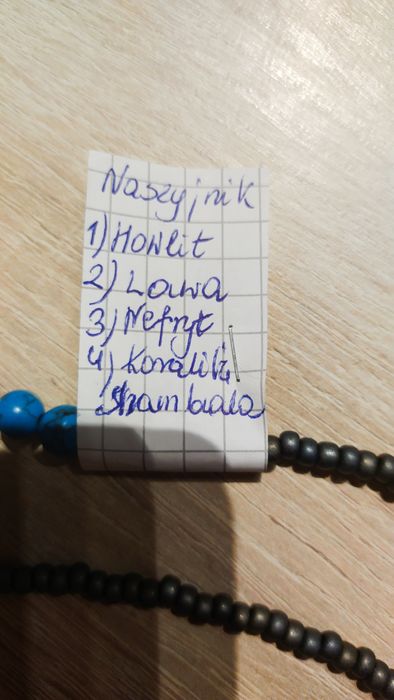 Naszyjnik
1) Howlit
2) Lawa
3) Nefryt
4) Koralik
Shambala